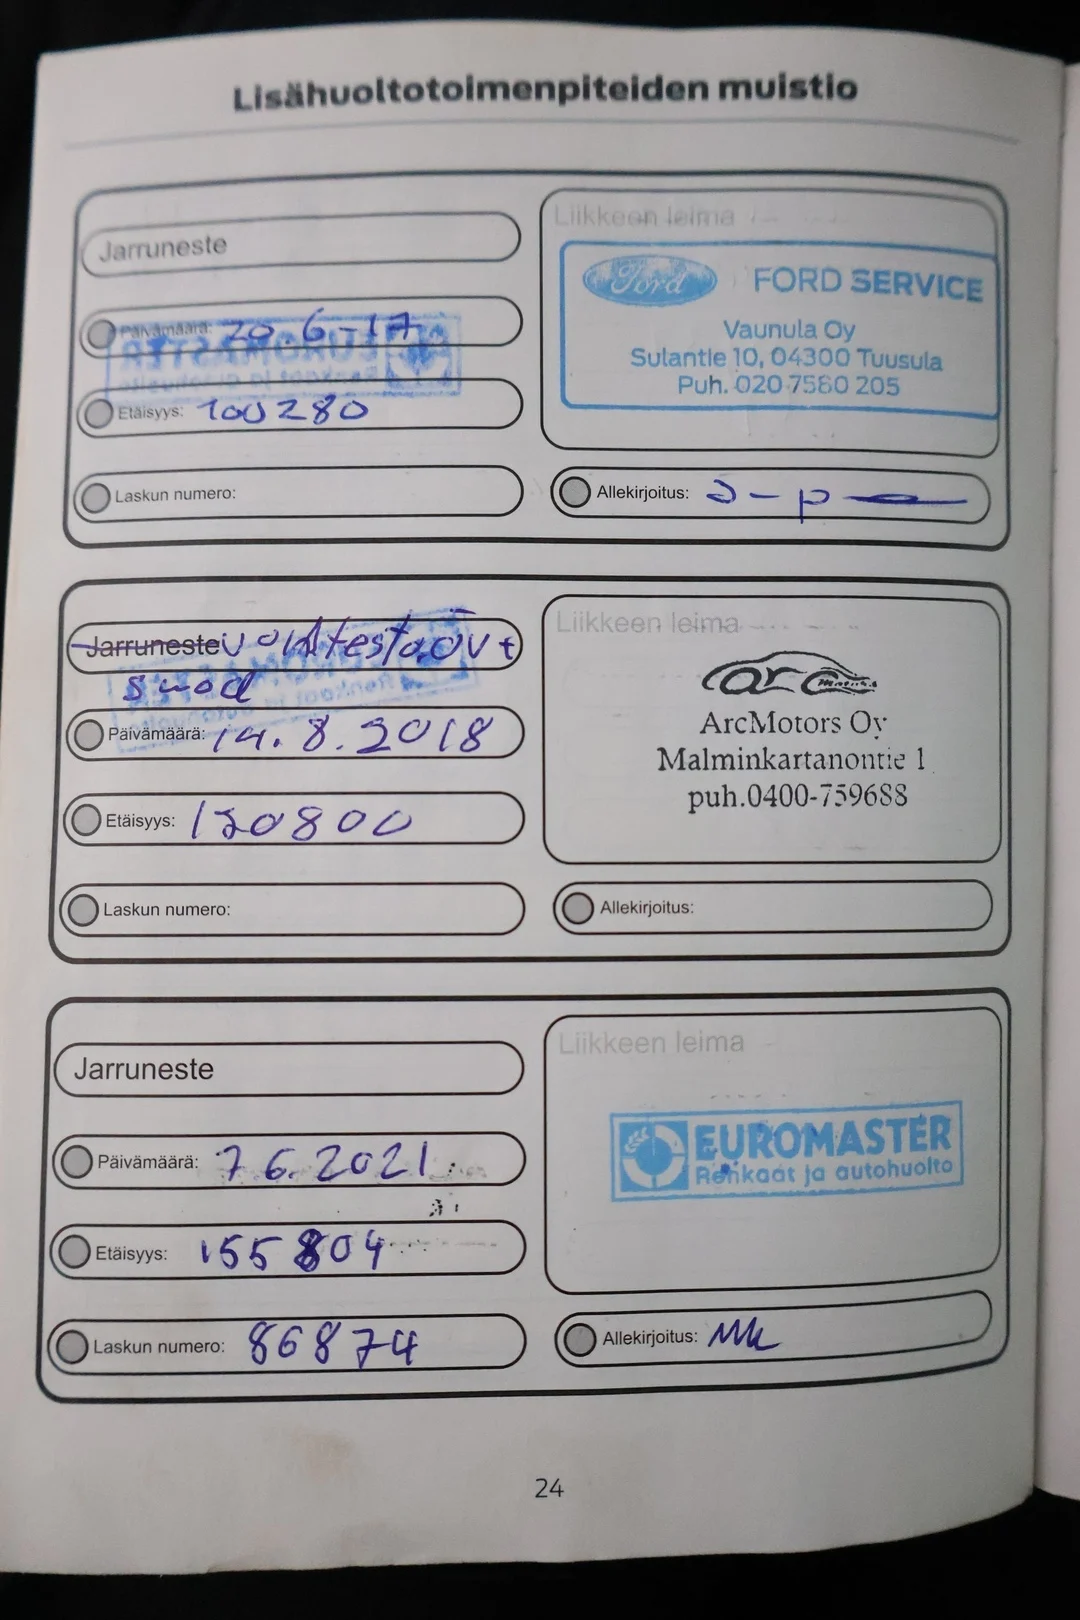 Lisähuoltotoimenpiteiden muistio
Jarruneste
Päivämäärä: 20.6-17
Etäisyys: 100280
Laskun numero:
Liikkeen leima
Ford FORD SERVICE
Vaunula Oy
Sulantie 10, 04300 Tuusula
Puh. 020 7560 205
Allekirjoitus:
Jarruneste
Päivämäärä: 14.8.2018
Etäisyys: 120800
Laskun numero:
Liikkeen leima
arc Motors
ArcMotors Oy
Malminkartanontie 1
puh.0400-759688
Allekirjoitus:
Jarruneste
Päivämäärä: 7 6.2021
Etäisyys: 155804
Laskun numero: 86874
Liikkeen leima
EUROMASTER
Renkaat ja autohuolto
Allekirjoitus:
24